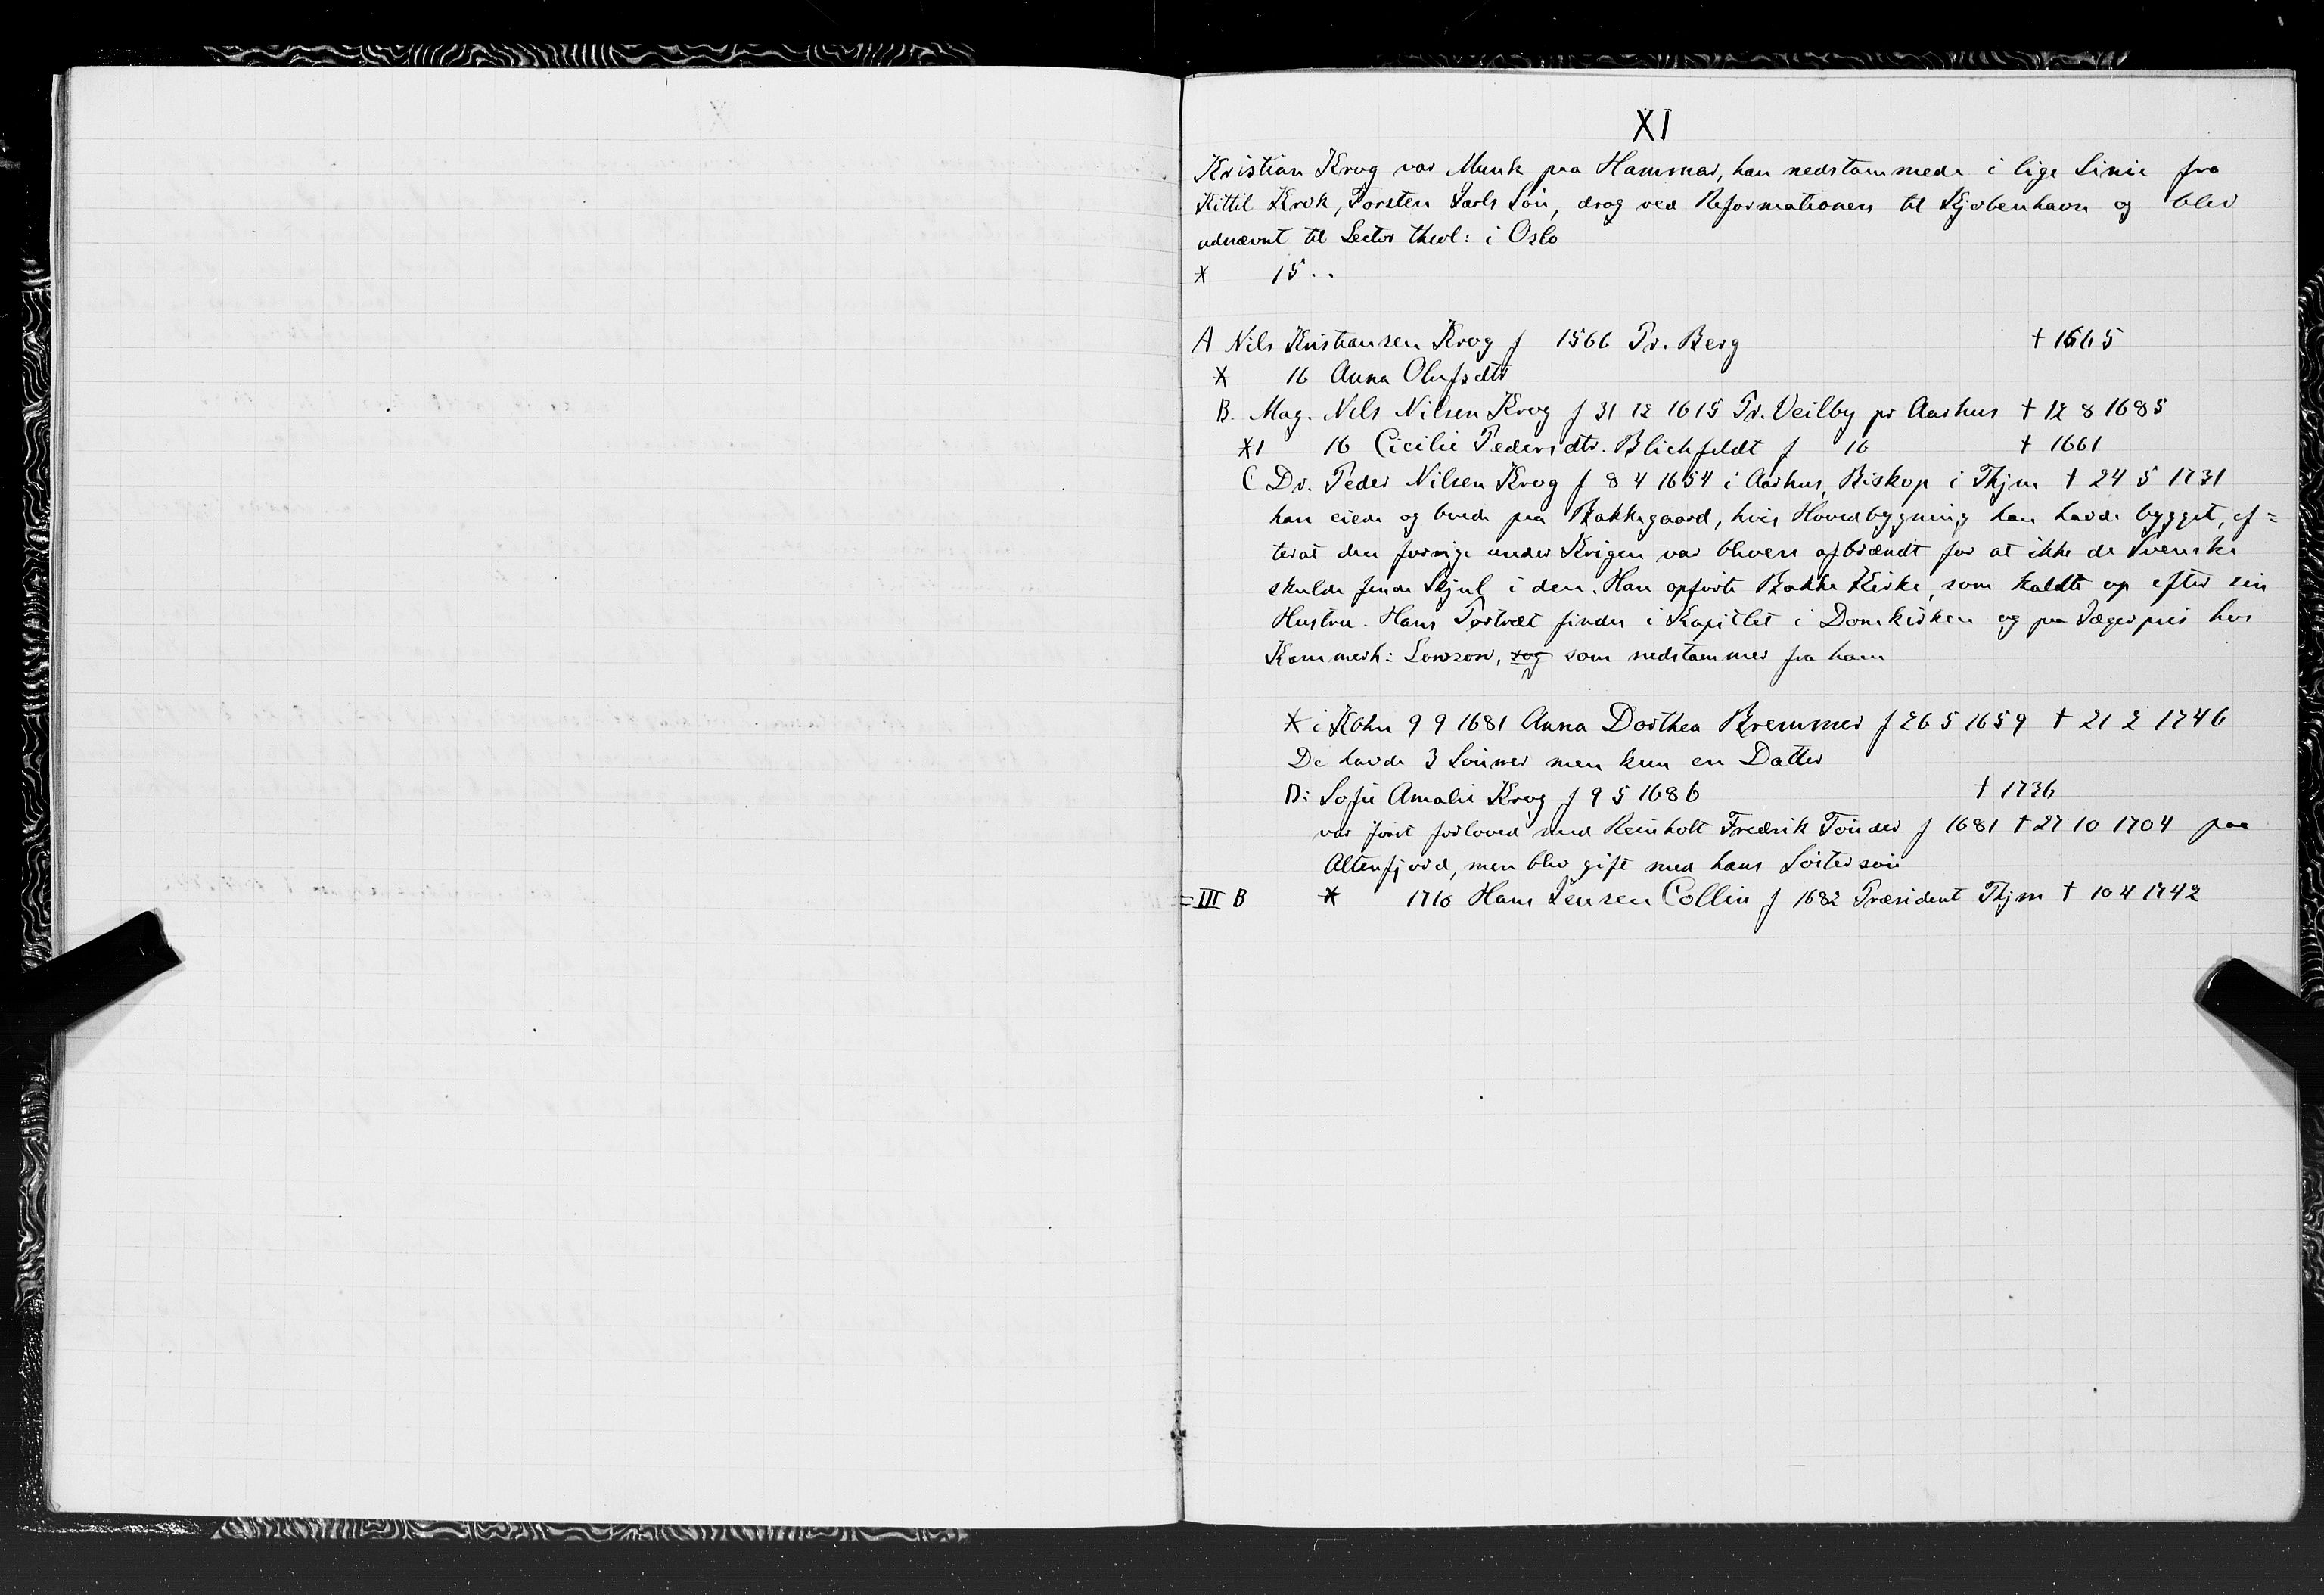 XI
Kristian Krog var Munk paa Hammar, han nedstammede i lige Linie fra
Kittil Krok, Torsten Jarls Sön, drog ved Reformationen til Kjøbenhavn og blev
udnævnt til Lector theol: i Oslo
X 15..
A Nils Kristiansen Krog f 1566 Pr. Berg † 1665
X 16 Anna Olufsdtr
B. Mag. Nils Nilsen Krog f 31 12 1615 Pr. Veilby pr Aarhus † 12 8 1685
X1 16 Cicilie Pedersdtr. Blichfeldt f 16 † 1661
C Dr. Peder Nilsen Krog f 8 4 1654 i Aarhus, Biskop i Thjm † 24 5 1731
han eiede og boede paa Bakkegaard, hvis Hovedbygning han havde bygget, ef=
terat den forrige under Krigen var bleven afbrændt for at ikke de Svenske
skulde finde Skjul i den. Han opførte Bakke Kirke, som kaldte op efter sin
Hustru. Hans Portræt findes i Kapitlet i Domkirken og paa Jægerpris hos
Kammerh: Lowzow, sog som nedstammer fra ham
X i Kbhn 9 9 1681 Anna Dorthea Bremmer f 26 5 1659 † 21 2 1746
De havde 3 Sönner men kun en Datter
D: Sofie Amalie Krog f 9 5 1686 † 1736
var först forloved med Reinholt Fredrik Tönder f 1681 † 27 10 1704 paa
Altenfjord, men blev gift med hans Söstersön
= III B X 1710 Hans Jensen Collin f 1682 Præsident Thjm † 10 4 1742